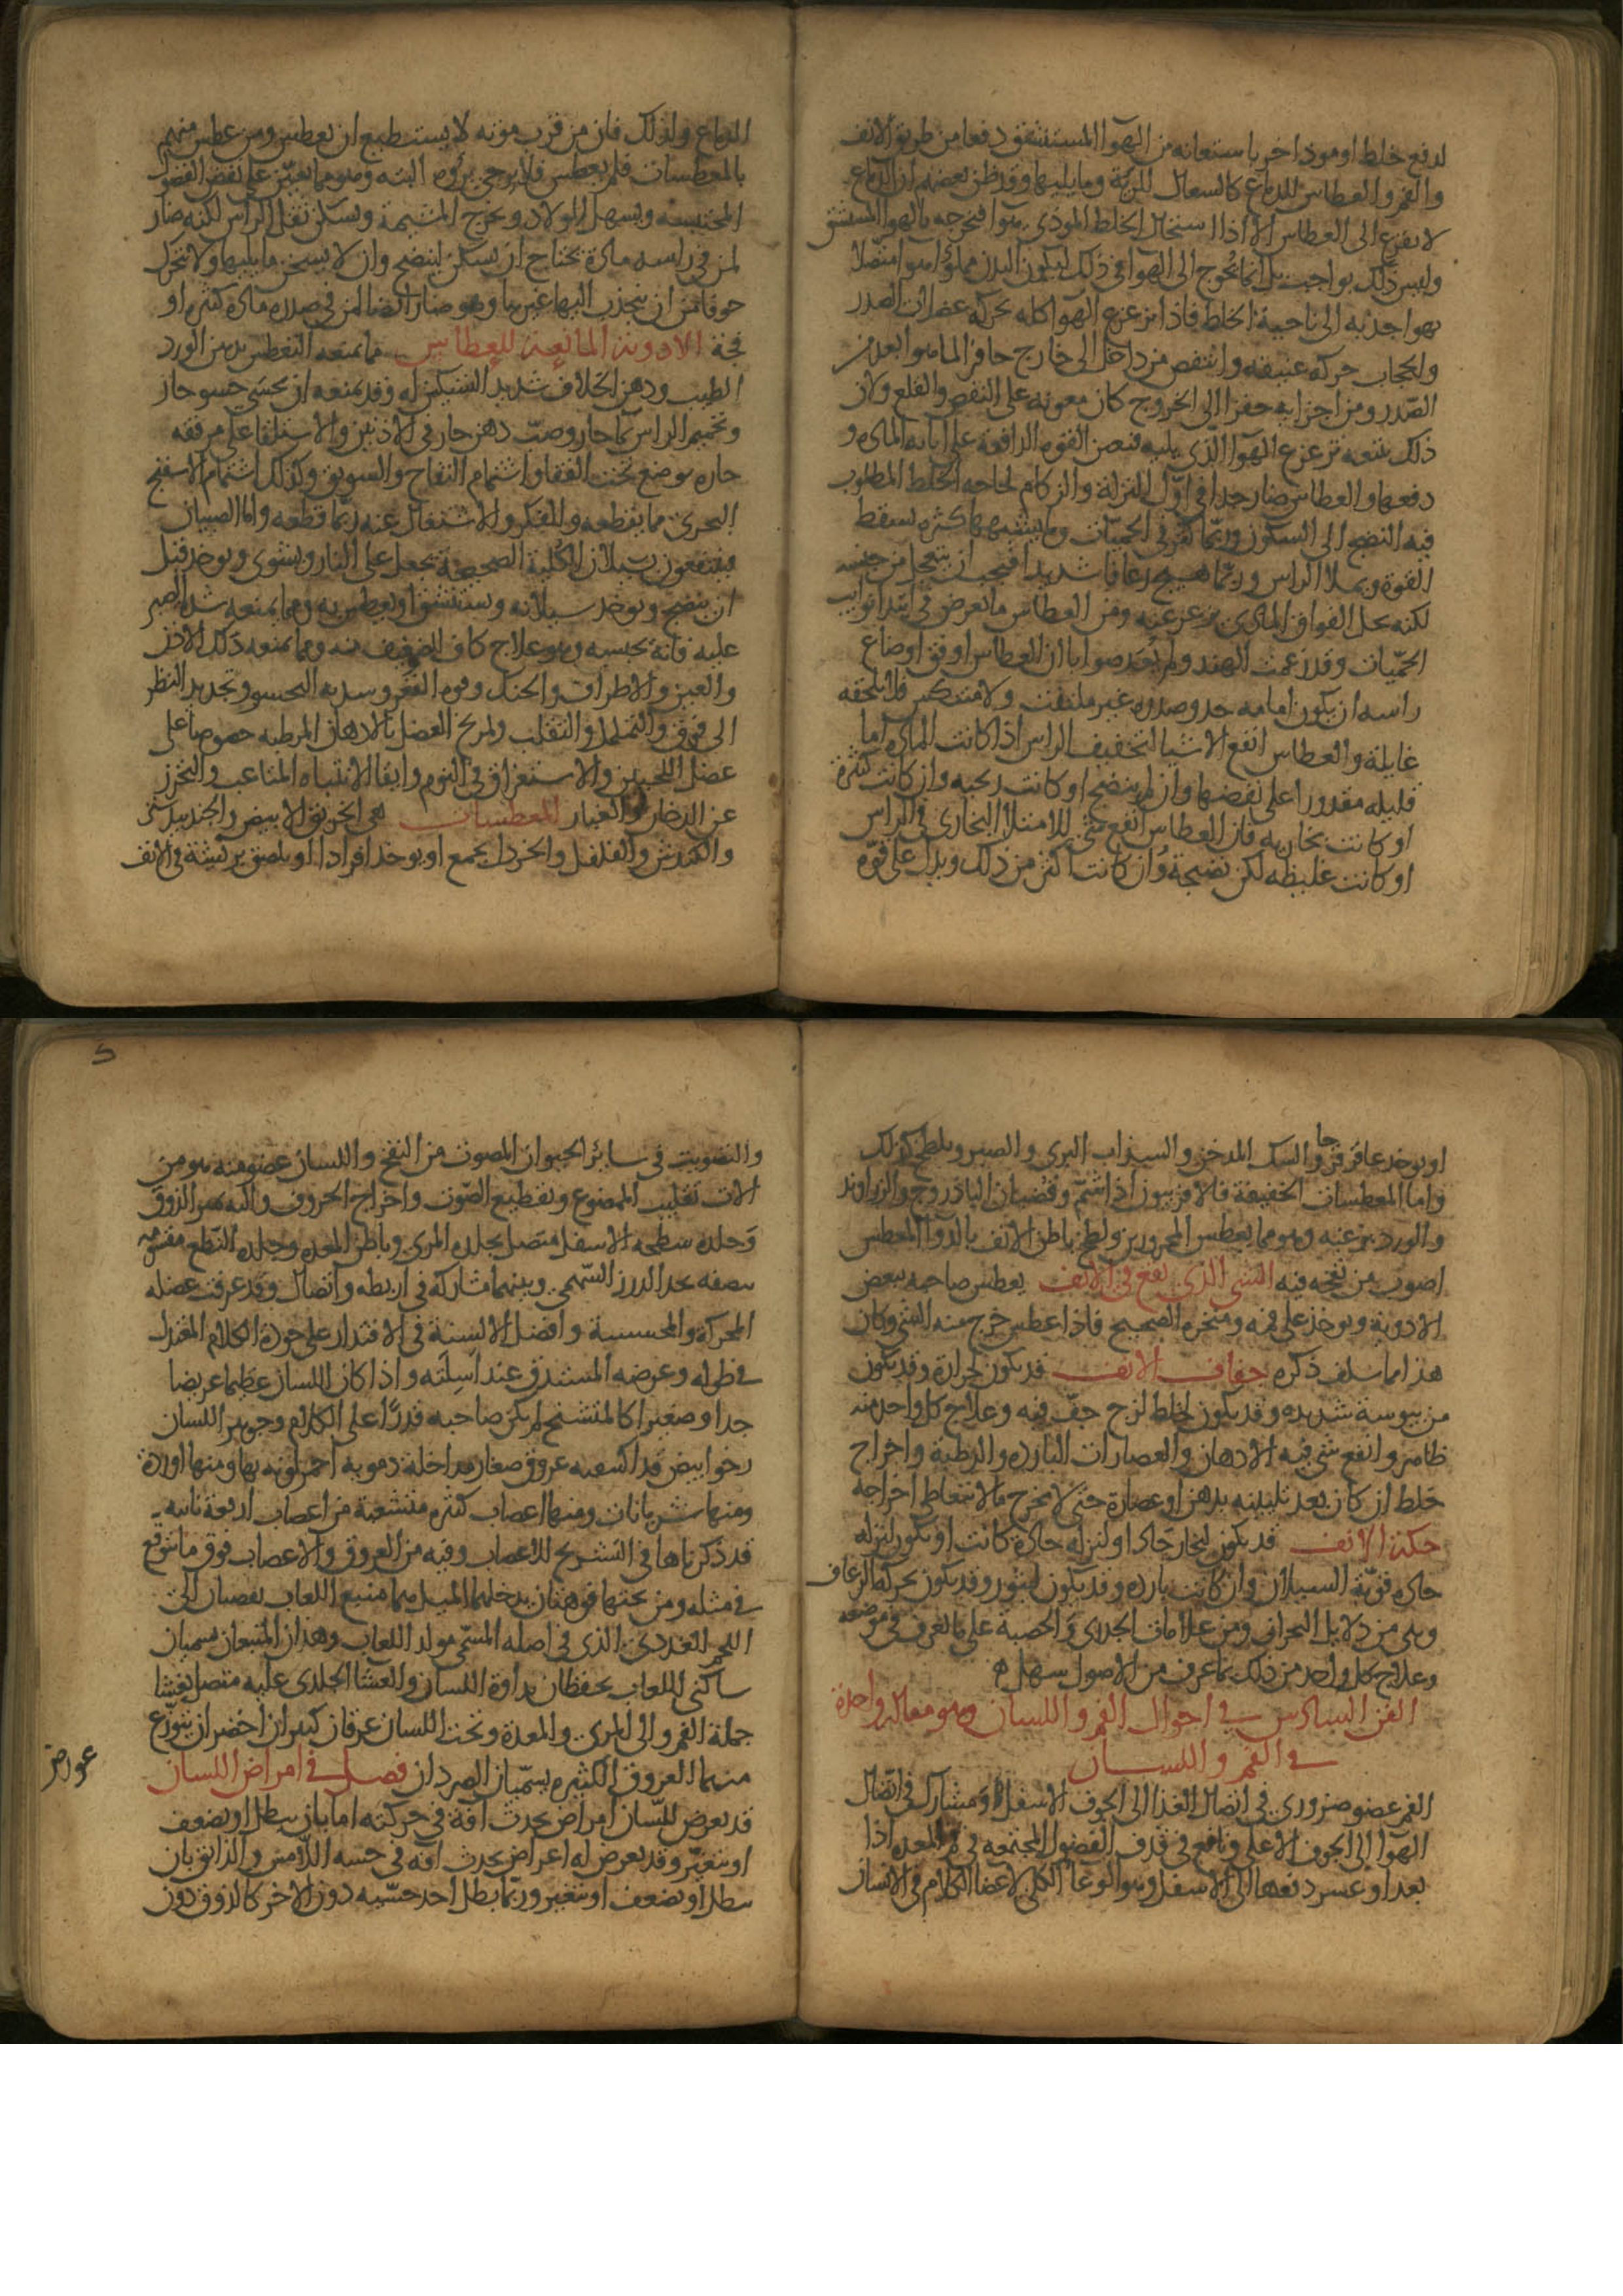 لدفع خلط او موذ اخر باستعانه من الهوا المستنشق دفعا من طريق الانف
والفم والعطاس للدماع كالسعال للرية وما يليها وقد ظن بعضهم ان الدماع
لا يفزع الى العطاس الا اذا استحال الخلط الموذى هوا فيخرجه بالهوا المستنشق
وليس ذلك بواجب بل انما يُحوج الى الهوا فى ذلك ليكون البدن مملوا هوا متصلا
بهوا جذبه الى ناحية الخلط فاذا تزعزع الهوا كله بحركه عضلات الصدر
والحجاب حركه عنيفه وانتفض من داخل الى خارج حافز الما هو ابعد من
الصدر ومن اجزايه حفزا الى الخروج كان معونه على النفض والقلع ولان
ذلك يتبعه تزعزع الهوا الذى يليه فيعين القوه الدافعة على اماله الماده و
دفعها والعطاس ضار جدا فى اوّل النزلة والزكام لحاجه الخلط المطلوب
فيه النضج الى السكون وربما كثر فى الحميّات وما يشبهها كثره تسقط
القوة ويملا الراس وربّما هيج رعافا شديدا فيجب ان يتعجل من حبسه
لكنه يحل الفواق المادى بزعزعته ومن العطاس ما يعرض فى ابتدا نوايب
الحمّيات وقد زعمت الهند ولم يُبعد صوابا ان العطاس اوفق اوضاع
راسه ان يكون امامه حد وصدره غير ملتفت ولا متنكس فلا يلحقه
غايلة والعطاس انفع الاشيا لتخفيف الراس اذا كانت الماده اما
قليله مقدورا على نفضها وان لم ينضج او كانت ريحيه وان كانت كثيرة
او كانت بخاريه فان العطاس انفع شى للامتلا البخارى فى الراس
او كانت غليظه لكن نضيجة وان كانت اكثر من ذلك ويدل على قوّه
الدماع ولذلك فان من قرب موته لا يستطيع ان يعطس ومن عطس منهم
بالمعطسات فلم يعطس فلا يرجى بروه البته وهو مما يعين على نفض الفضول
المحتبسه ويسهل الولاد ويخرج المشيمة ويسكن ثقل الراس لكنه ضار
لمن فى راسه مادة يحتاج ان يسكن لينضج وان لا يسخن ما يليها ولا يتحرك
خوفا من ان ينجذب اليها غيرها وهو ضار ايضا لمن فى صدره ماده كثيره او
فجة الادوية المانعة للعطاس مما يمنعه التعطس بدهن الورد
الطيب ودهن الخلاف شديد التسكين له وقد يمنعه ان يحسى حسو حار
وتحميم الراس بما حار وصبّ دهن حار فى الاذنين والاستلقا على مرفقه
حاره يوضع تحت القفا واشتمام التفاح والسويق وكذلك اشتمام الاسفنج
البحرى مما يقطعه والفكر والاشتغال عنه ربّما قطعه واما الصبيان
فينتفعون بسيلان الكلية الصحيحة يجعل على النار ويشوى ويوخذ قبل
ان ينضج ويوخذ سيلانه ويستنشق او يعطس به ومما يمنعه شده الصبر
عليه فانه يحبسه وهو علاج كاف للضعيف منه ومما يمنعه دلك الاذن
والعين والاطراف والحنك وقوه الفغر وسديه التحسو وتحديد النظر
الى فوق والتململ والتقلب ولمريخ العضل بالادهان المرطبه خصوصا على
عضل اللحيين والاستغراق فى النوم وايقا الانتباه المتاعب والتحرز
عن الدخان والغبار للمعطسات هى الخربق الابيض والجندبيدستر
والكندش والفلفل والخردل يجمع او يوخذ افرادا او يلصق بريشة فى الانف
او يوخذ عاقر قرحا والسك المدخن والسذاب البرى والصبر ويلطخ كذلك
واما المعطسات الخفيفة فالافربيون اذا اشتمّ وقضبان الباذروج والزراوند
والورد بزغبه وهو مما يعطس المحرورين ولطخ باطن الانف بالدوا المعطس
اصوب من نفخه فيه الشى الذى يقع فى الانف يعطس صاحبه ببعض
الادوية ويوخذ على فمه ومنخره الصحيح فاذا عطس خرج منه الشى وكان
هذا مما سلف ذكره جفاف الانف قد يكون لحرارة وقد يكون
من يبوسة شديده وقد يكون لخلط لزج جفّ فيه وعلاج كل واحد منه
ظاهر وانفع شى فيه الادهان والعصارات البارده والرطبة واخراج
خلط ان كان بعد تليينه بدهن او عصارة حتى لا يخرج ما لا يتعاطى اخراجه
حكة الانف قد يكون لبخار حاد او لنزله حادة كانت او يكون لنزله
حاده قويّة السيلان وان كانت بارده وقد يكون لبثور وقد يكون بحركه الرعاف
وهى من دلايل البحران ومن علامات الجدرى والحصبة على ما تعرف فى موضعه
وعلاج كل واحد من ذلك بما عرف من الاصول سهل ه
الفن السادس فى احوال الفم واللسان وهو مقاله واحدة
فى الفم واللسان
الفم عضو ضرورى فى ايصال الغذا الى الجوف الاسفل ومشارك فى ايصال
الهوا الى الجوف الاعلى ونافع فى قذف الفضول المجتمعه فى فم المعده اذا
تعذر او عسر دفعها الى الاسفل وهو الوعا الكلى لاعضا الكلام فى الانسان
والتصويت فى ساير الحيوان المصوت من النفخ واللسان عضو منه هو من
الات تقليب الممضوغ وتقطيع الصّوت واخراج الحروف واليه تمييز الذوق
وجلده سطحه الاسفل متصل بجلده المرى وباطن المعده وجلده النطع مقسومه
منصفه بحد الدرز السّهمى وبينهما مشاركه فى اربطه واتصال وقد عرفت عضله
المحركة والمحسسية وافضل الالسنة فى الاقتدار على جودة الكلام المعتدل
فى طوله وعرضه المستدق عند اَسِلَته واذا كان اللسان عظيما عريضا
جدا او صغيرا كالمتشنج لم يكن صاحبه قدرًا على الكلام وجوهر اللسان
رخو ابيض قد اكتنفته عروق صغار مداخلة دمويه احمر لونه بها ومنها اوردة
ومنها شريانات ومنها اعصاب كثيره متشعبة من اعصاب اربعة ناتيه
قد ذكرناها فى التشريح للاعصاب وفيه من العروق والاعصاب فوق ما يتوقع
فى مثله ومن تحتها فوهتان يدخلهما الميل هما منبع اللعاب يفضيان الى
اللحم الغددى الذى فى اصله المسمّى مولد اللعاب وهذان المنبعان يسميان
ساكبى اللعاب يحفظان نداوة اللسان والغشا الجلدى عليه متصل بغشا
جملة الفم والى المرى والمعدة وتحت اللسان عرقان كبيران اخضران يتوزّع
منهما العروق الكثيره يسمّيان الصردان فصل فى امراض اللسان
عوارض
قد يعرض للسان امراض يحدث افة فى حركته اما بان يبطل او يضعف
او يتغيّر وقد يعرض له اعراض يحدث افه فى حسه اللامس والذايق بان
يبطل او يضعف او يتغير وربّما بطل احد حسّيه دون الاخر كالذوق دون